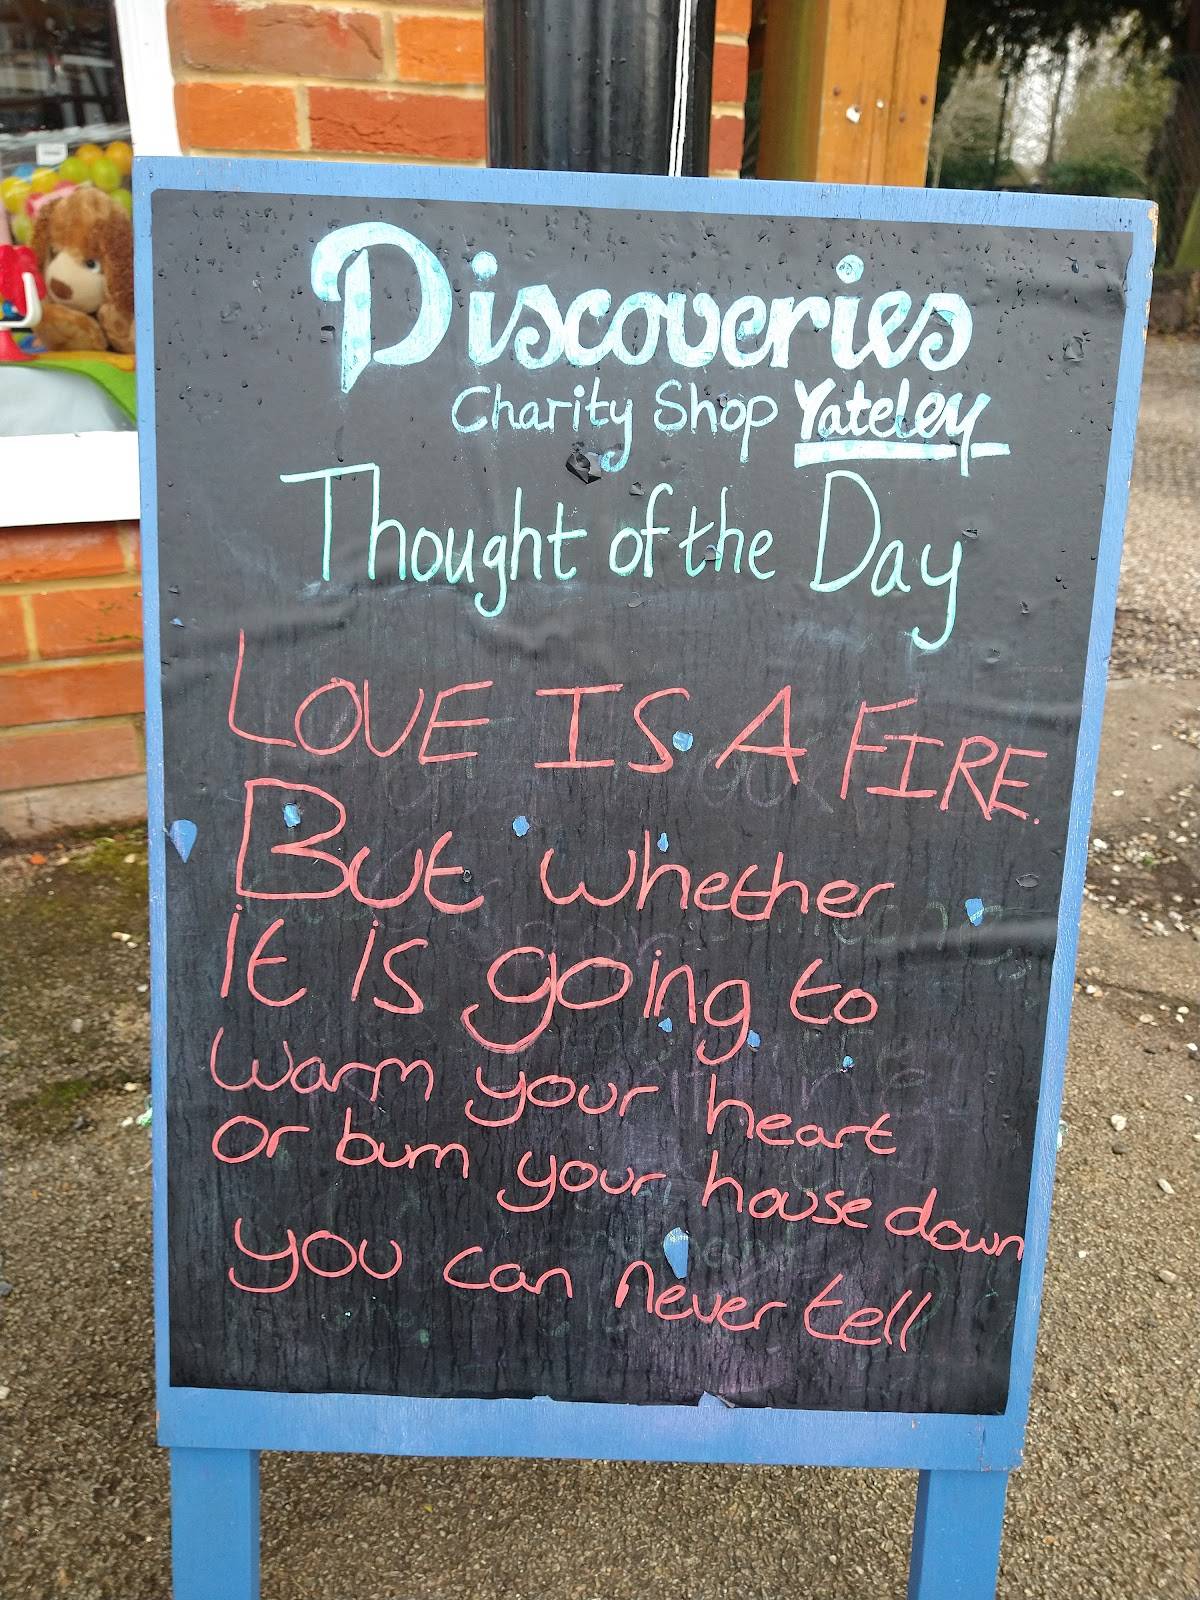 Discoveries
Charity Shop Yateley
Thought of the Day
LOVE IS A FIRE.
But whether
it is going to
warm your heart
or burn your house down
you can never tell